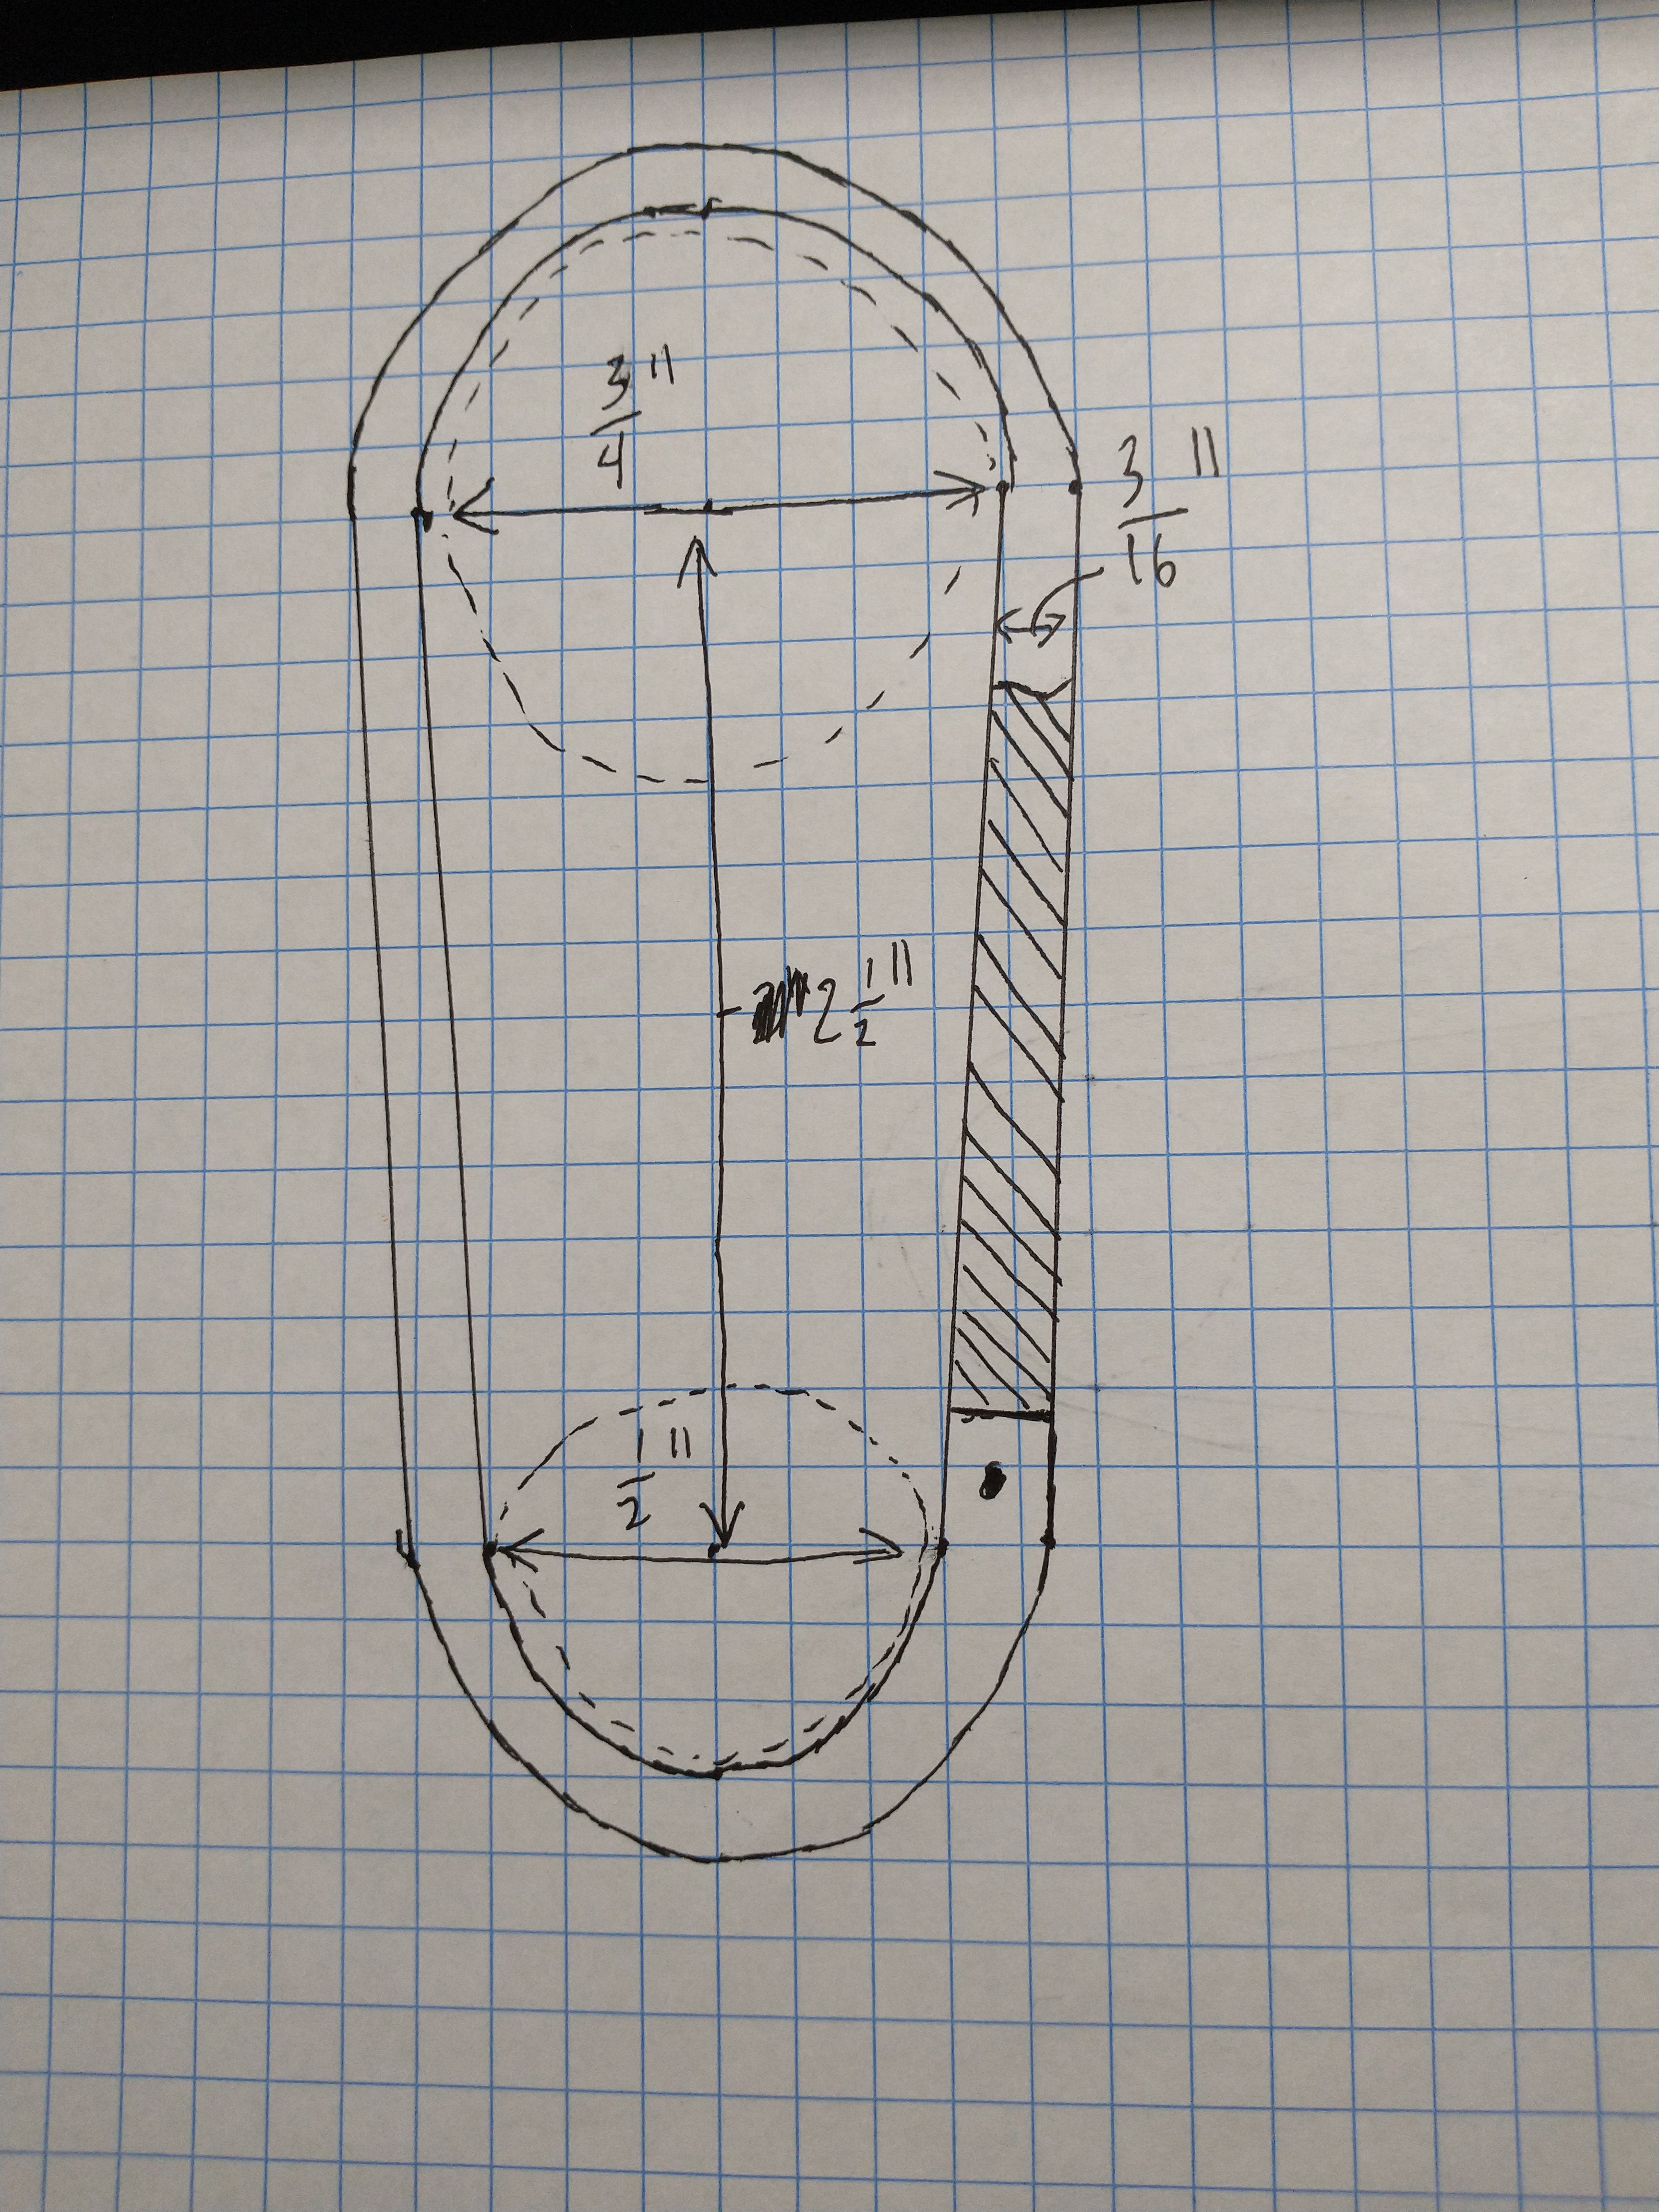 3/4"
3/16"
2 1/2"
1/2"